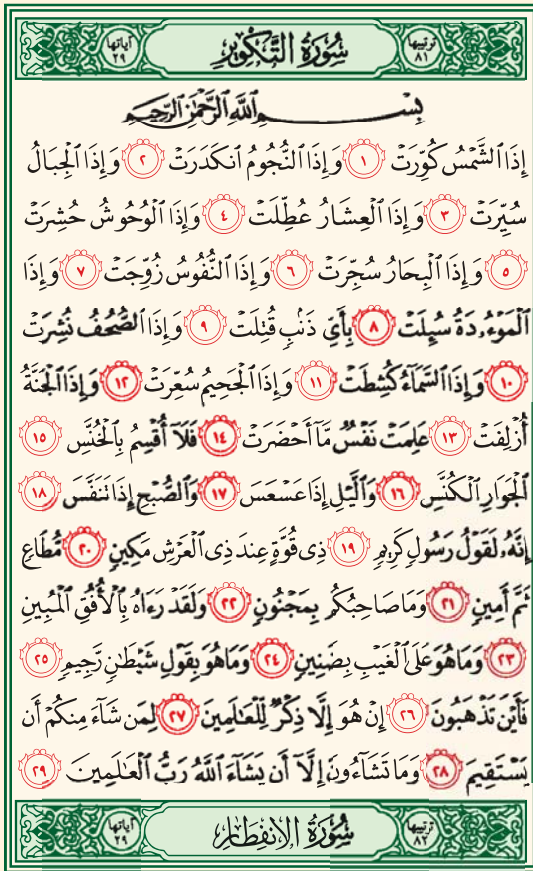 ترتيبها ٨١ سُورَةُ التَّكْوِيرِ آياتها ٢٩
بِسْمِ اللَّهِ الرَّحْمَٰنِ الرَّحِيمِ
إِذَا الشَّمْسُ كُوِّرَتْ ١ وَإِذَا النُّجُومُ انكَدَرَتْ ٢ وَإِذَا الْجِبَالُ
سُيِّرَتْ ٣ وَإِذَا الْعِشَارُ عُطِّلَتْ ٤ وَإِذَا الْوُحُوشُ حُشِرَتْ
٥ وَإِذَا الْبِحَارُ سُجِّرَتْ ٦ وَإِذَا النُّفُوسُ زُوِّجَتْ ٧ وَإِذَا
الْمَوْءُۥدَةُ سُئِلَتْ ٨ بِأَيِّ ذَنۢبٍ قُتِلَتْ ٩ وَإِذَا الصُّحُفُ نُشِرَتْ
١٠ وَإِذَا السَّمَآءُ كُشِطَتْ ١١ وَإِذَا الْجَحِيمُ سُعِّرَتْ ١٢ وَإِذَا الْجَنَّةُ
أُزْلِفَتْ ١٣ عَلِمَتْ نَفْسٌ مَّآ أَحْضَرَتْ ١٤ فَلَآ أُقْسِمُ بِالْخُنَّسِ ١٥
الْجَوَارِ الْكُنَّسِ ١٦ وَالَّيْلِ إِذَا عَسْعَسَ ١٧ وَالصُّبْحِ إِذَا تَنَفَّسَ ١٨
إِنَّهُۥ لَقَوْلُ رَسُولٍ كَرِيمٍ ١٩ ذِي قُوَّةٍ عِندَ ذِي الْعَرْشِ مَكِينٍ ٢٠ مُّطَاعٍ
ثَمَّ أَمِينٍ ٢١ وَمَا صَاحِبُكُم بِمَجْنُونٍ ٢٢ وَلَقَدْ رَءَاهُ بِالْأُفُقِ الْمُبِينِ
٢٣ وَمَا هُوَ عَلَى الْغَيْبِ بِضَنِينٍ ٢٤ وَمَا هُوَ بِقَوْلِ شَيْطَٰنٍ رَّجِيمٍ ٢٥
فَأَيْنَ تَذْهَبُونَ ٢٦ إِنْ هُوَ إِلَّا ذِكْرٌ لِّلْعَالَمِينَ ٢٧ لِمَن شَآءَ مِنكُمْ أَن
يَسْتَقِيمَ ٢٨ وَمَا تَشَآءُونَ إِلَّآ أَن يَشَآءَ اللَّهُ رَبُّ الْعَٰلَمِينَ ٢٩
ترتيبها ٨٢ سُورَةُ الانفِطَارِ آياتها ٢٩